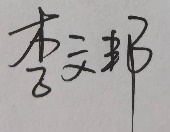 李文邦